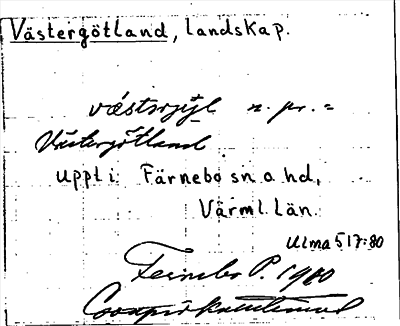 Västergötland, landskap.
västerjyl n. pr. =
Västergötland.
Uppt i Färnebo sn. o. hd,
Värml. län.
Ulma 517:80
Fernebo P. 1900